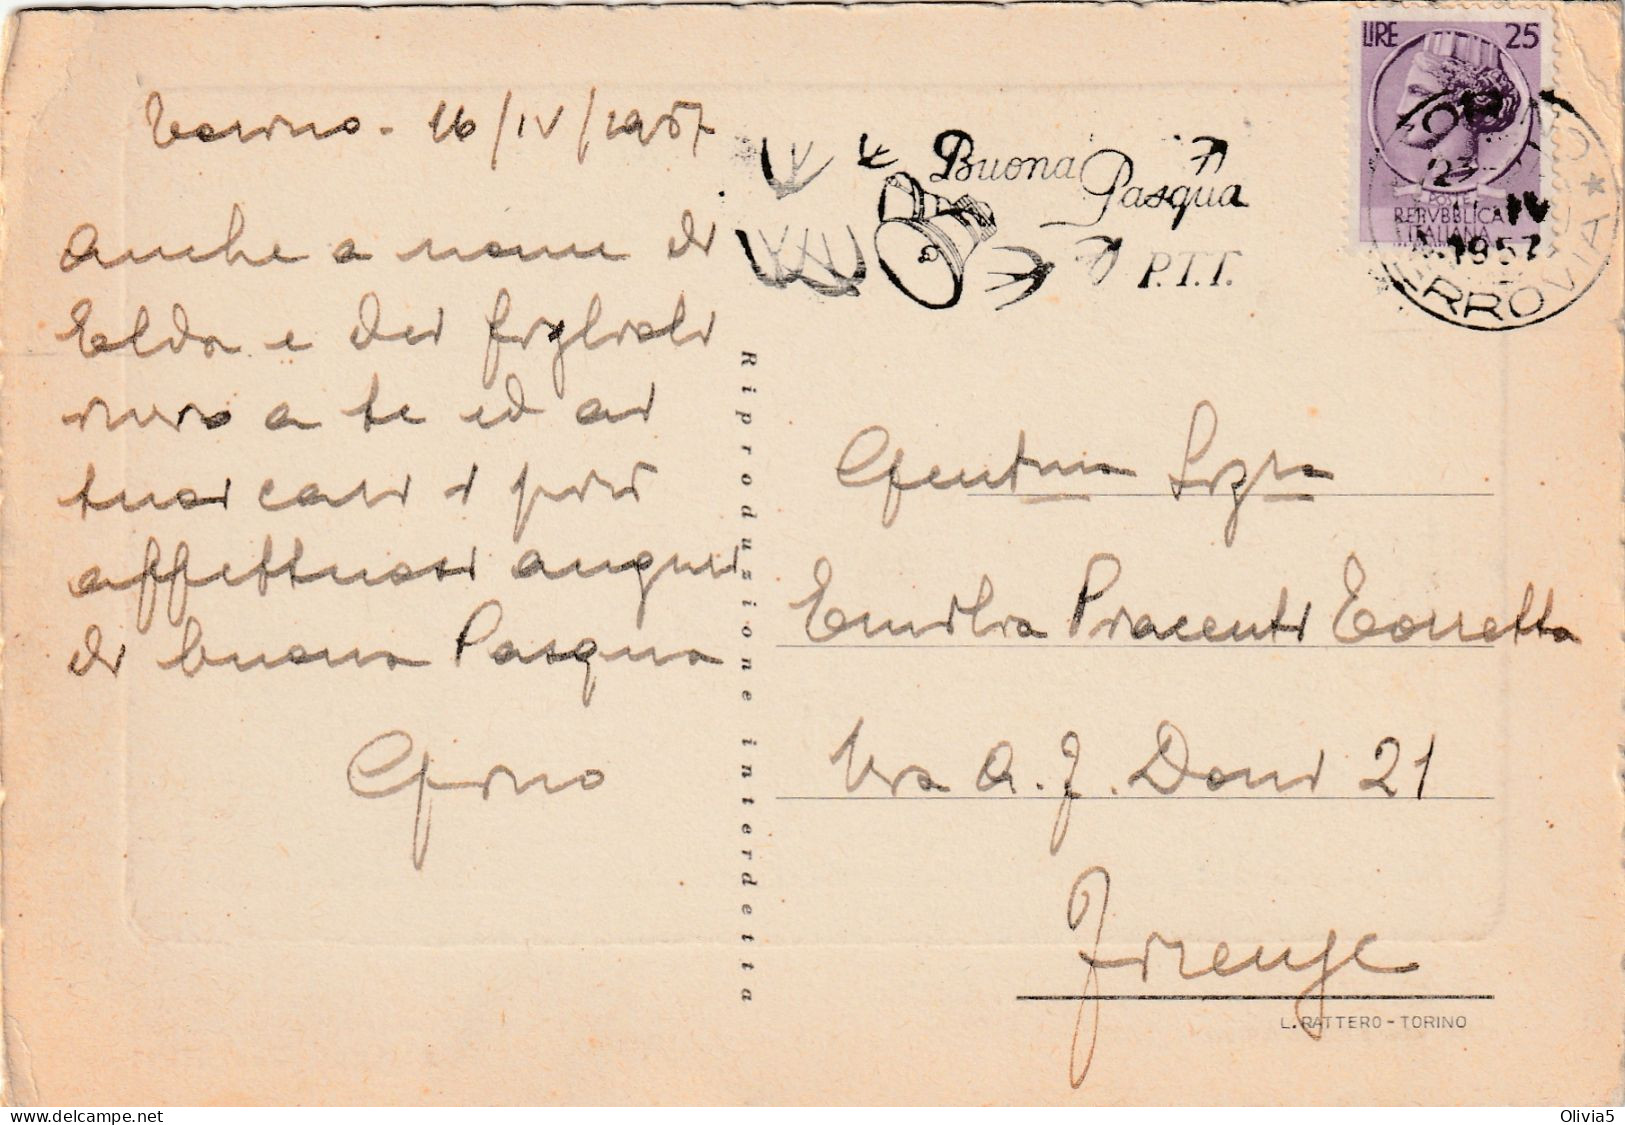 Torino - 16/IV/1957
anche a nome di
Elda e dei figlioli
invio a te ed ai
tuoi cari i più
affettuosi auguri
di buona Pasqua
Gino
Riproduzione interdetta
Buona Pasqua
P.T.T.
LIRE 25
POSTE
REPVBBLICA
ITALIANA
23
IV
1957
FERROVIA *
Gentma Sigra
Emilia Piacenti Torretta
Via A. F. Doni 21
Firenze
L. RATTERO - TORINO
Olivia5
delcampe.net